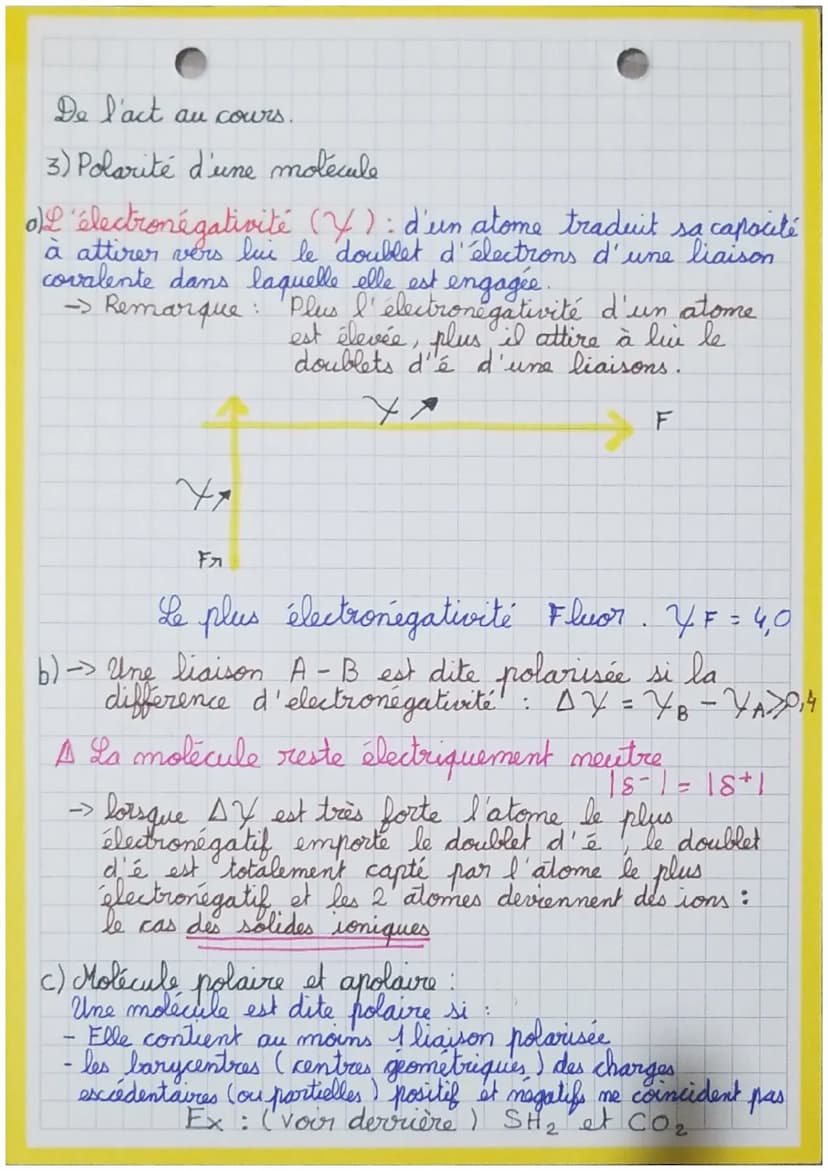 De l'act au cours.
3) Polarité d'une molécule
a) L'électronégativité (χ) : d'un atome traduit sa capacité
à attirer vers lui le doublet d'électrons d'une liaison
covalente dans laquelle elle est engagée.
-> Remarque : Plus l'électronégativité d'un atome
est élevée, plus il attire à lui le
doublets d'é d'une liaisons.
χ ↗
F
χ ↗
Fr
Le plus électronégativité Fluor. χ F = 4,0
b) -> Une liaison A - B est dite polarisée si la
différence d'electronégativité : Δχ = χB - χA ⩾ 0,4
⚠ La molécule reste électriquement neutre
|δ-| = |δ+|
-> lorsque Δχ est très forte l'atome le plus
électronégatif emporte le doublet d'é, le doublet
d'é est totalement capté par l'atome le plus
électronégatif et les 2 atomes deviennent des ions :
le cas des solides ioniques
c) Molécule polaire et apolaire :
Une molécule est dite polaire si :
- Elle contient au moins 1 liaison polarisée
- les barycentres (centres géométriques) des charges
escédentaires (ou partielles) positif et négatifs ne coincident pas
Ex : (voir derrière) SH2 et CO2